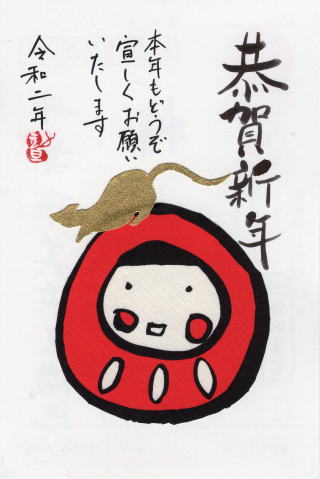 恭賀新年
本年もどうぞ
宜しくお願い
いたします
令和二年
元旦